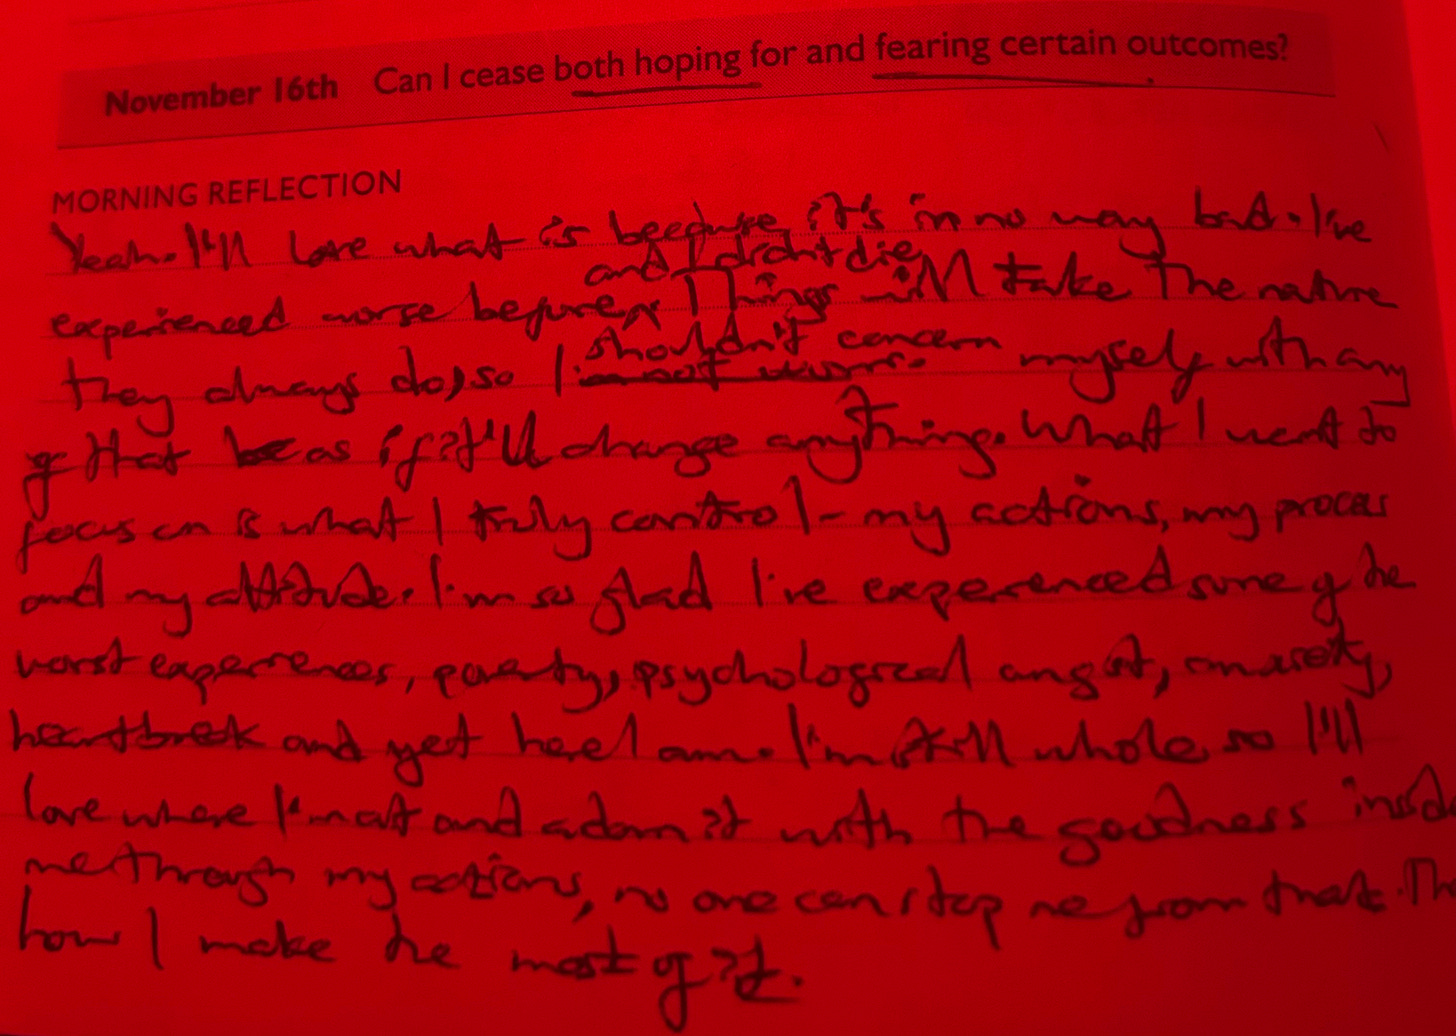 November 16th Can I cease both hoping for and fearing certain outcomes?
MORNING REFLECTION
Yeah. I'll love what is because it's in no way bad. I've
and I didn't die
experienced worse before, Things will take the nature
shouldn't concern
they always do, so I myself with any
of that as if it'll change anything. What I want to
focus on is what I truly control - my actions, my process
and my attitude. I'm so glad I've experienced some of the
worst experiences, poverty, psychological angst, anxiety,
heartbreak and yet here I am. I'm still whole so I'll
love where I'm at and adorn it with the goodness insid
me through my actions, no one can stop me from that. Th
how I make the most of it.